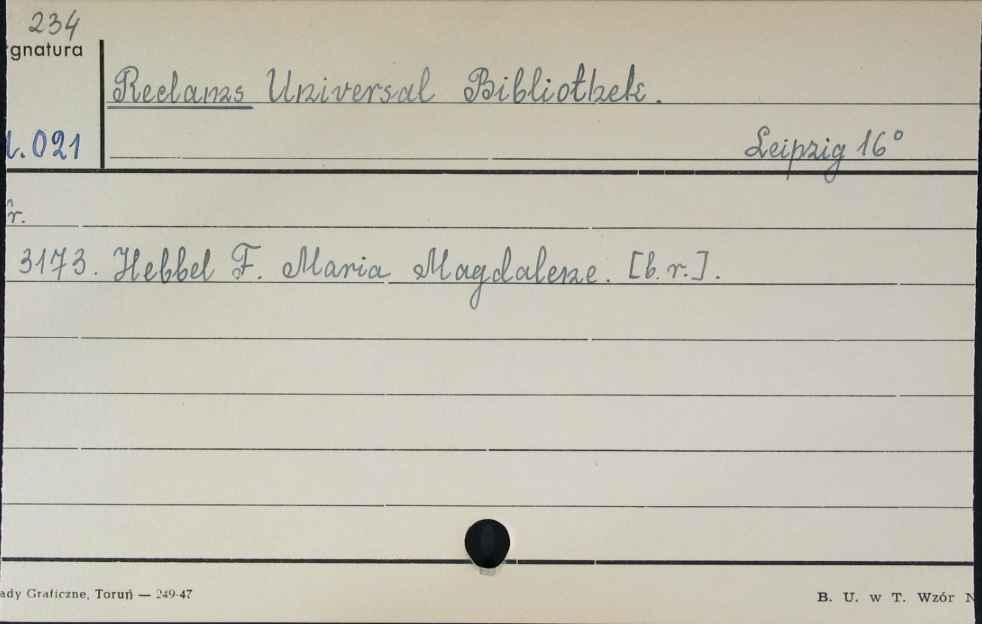 234
gnatura
Reclams Universal Bibliothek.
.021
Leipzig 16°
r.
3173. Hebbel F. Maria Magdalene. [b.r.].
ady Graficzne, Toruń — 249-47
B. U. w T. Wzór N